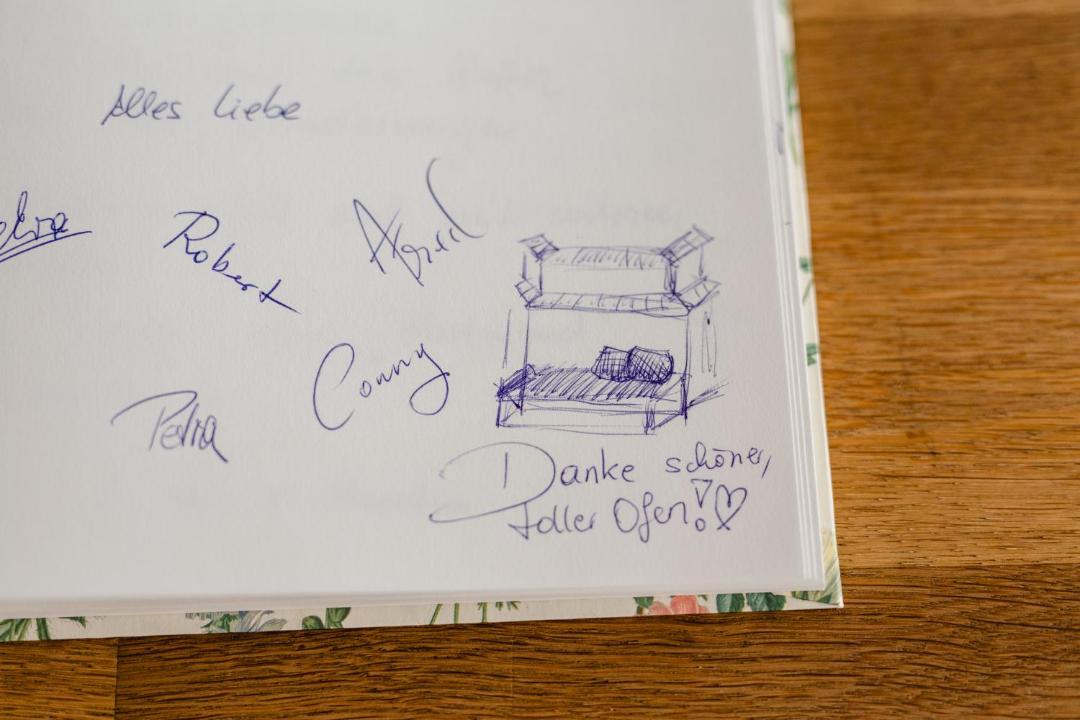 Alles Liebe
Robert
Astrid
Conny
Petra
Danke schöner,
toller Ofen! ♡